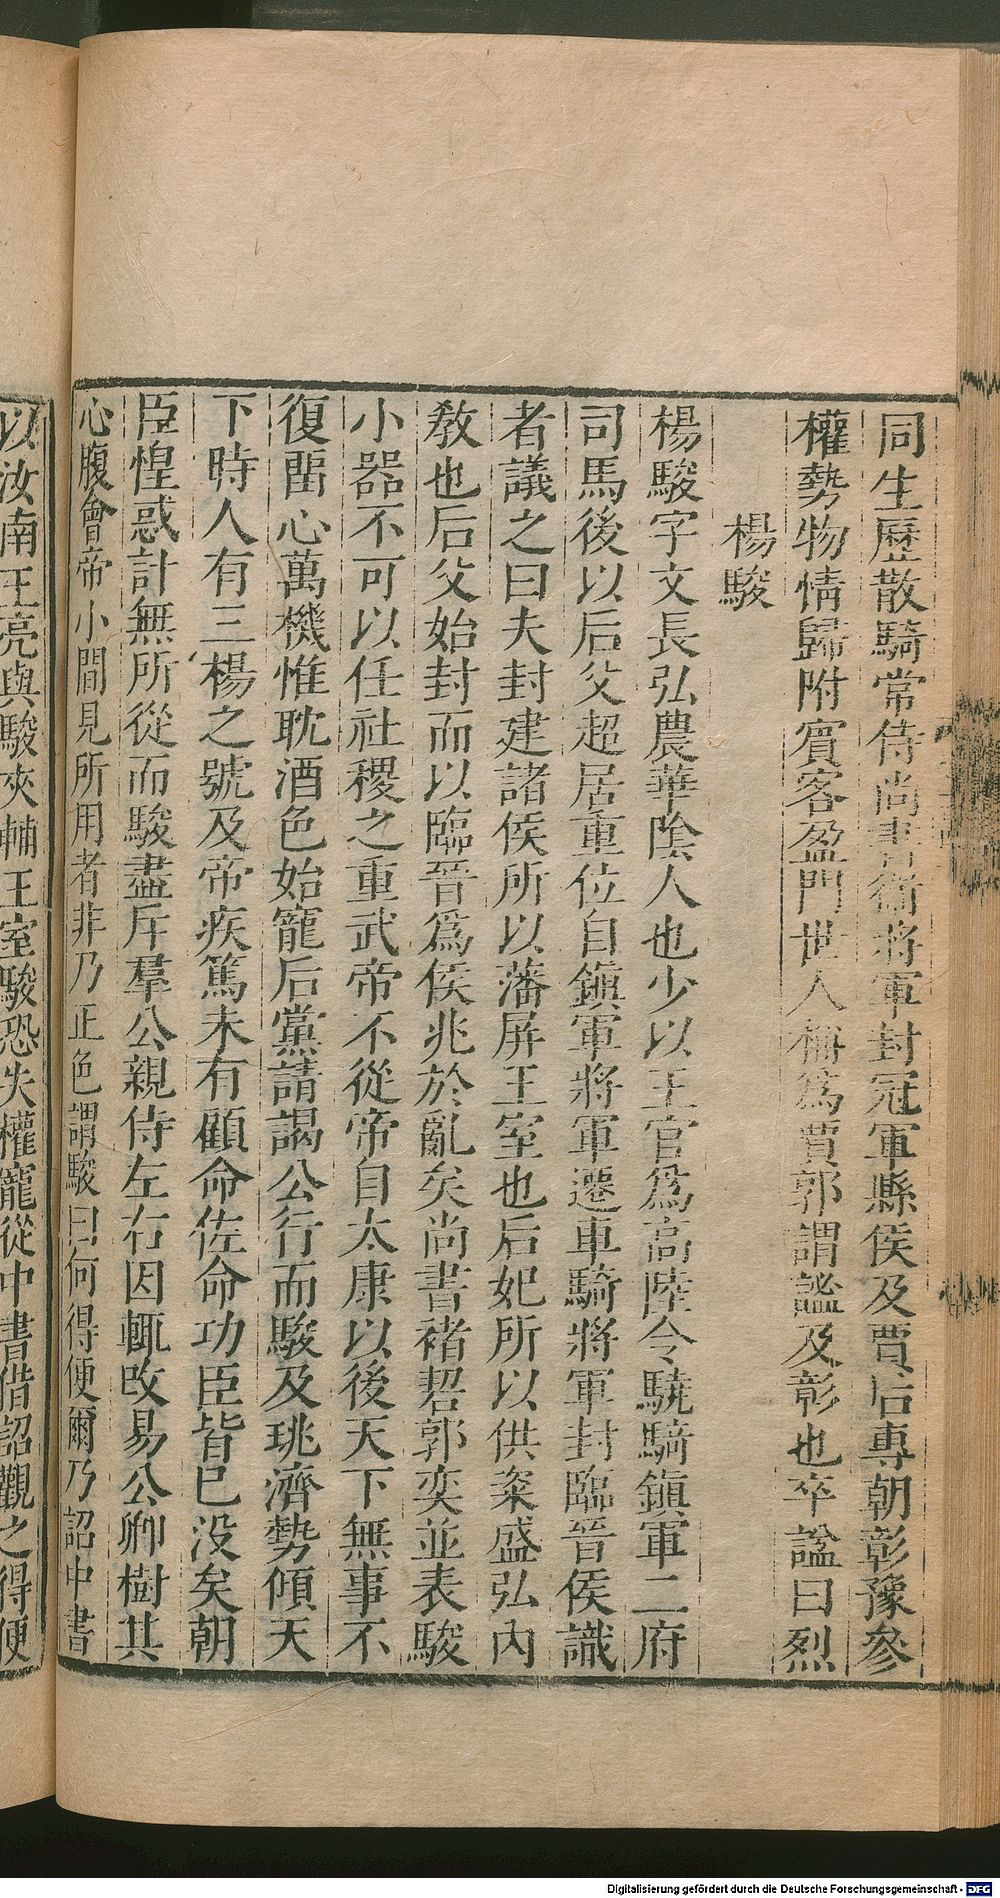 同生歷散騎常侍尚書衞將軍封冠軍縣侯及賈后專朝彰豫參
權勢物情歸附賓客盈門世人稱爲賈郭謂謐及彰也卒謚曰烈
楊駿
楊駿字文長弘農華陰人也少以王官爲高陸令驍騎鎭軍二府
司馬後以后父超居重位自鎭軍將軍遷車騎將軍封臨晉侯識
者議之曰夫封建諸侯所以藩屏王室也后妃所以供粢盛弘內
教也后父始封而以臨晉爲侯兆於亂矣尚書褚䂮郭奕並表駿
小器不可以任社稷之重武帝不從帝自太康以後天下無事不
復留心萬機惟耽酒色始寵后黨請謁公行而駿及珧濟勢傾天
下時人有三楊之號及帝疾篤未有顧命佐命功臣皆已没矣朝
臣惶惑計無所從而駿盡斥羣公親侍左右因輒改易公卿樹其
心腹會帝小間見所用者非乃正色謂駿曰何得便爾乃詔中書
以汝南王亮與駿夾輔王室駿恐失權寵從中書借詔觀之得便
Digitalisierung gefördert durch die Deutsche Forschungsgemeinschaft - DFG